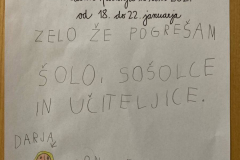 od 18. do 22. januarja
ZELO ŽE POGREŠAM
ŠOLO, SOŠOLCE
IN UČITELJICE.
DARJA